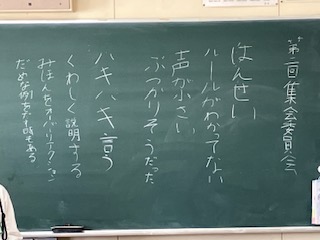 第二回集会委員会
はんせい
ルールがわかってない
声が小さい
ぶつかりそうだった
ハキハキ言う
くわしく説明する
みほんをオーバーリアクション
だめな例をだす時もある